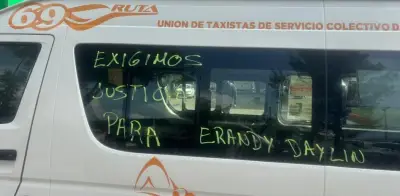 69 RUTA
UNION DE TAXISTAS DE SERVICIO COLECTIVO D
EXIGIMOS
JUSTICIA
PARA ERANDY DAYLIN